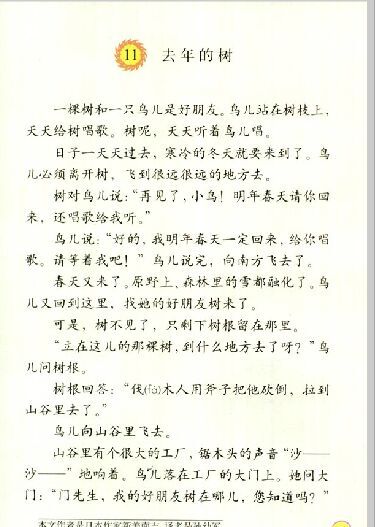 11 去年的树
一棵树和一只鸟儿是好朋友。鸟儿站在树枝上，
天天给树唱歌。树呢，天天听着鸟儿唱。
日子一天天过去，寒冷的冬天就要来到了。鸟
儿必须离开树，飞到很远很远的地方去。
树对鸟儿说：“再见了，小鸟！明年春天请你回
来，还唱歌给我听。”
鸟儿说：“好的，我明年春天一定回来，给你唱
歌。请等着我吧！”鸟儿说完，向南方飞去了。
春天又来了。原野上、森林里的雪都融化了。鸟
儿又回到这里，找她的好朋友树来了。
可是，树不见了，只剩下树根留在那里。
“立在这儿的那棵树，到什么地方去了呀？”鸟
儿问树根。
树根回答：“伐(fá)木人用斧子把他砍倒，拉到
山谷里去了。”
鸟儿向山谷里飞去。
山谷里有个很大的工厂，锯木头的声音“沙——
沙——”地响着。鸟儿落在工厂的大门上。她问大
门：“门先生，我的好朋友树在哪儿，您知道吗？”
本文作者是日本作家新美南吉，译者是孙幼军